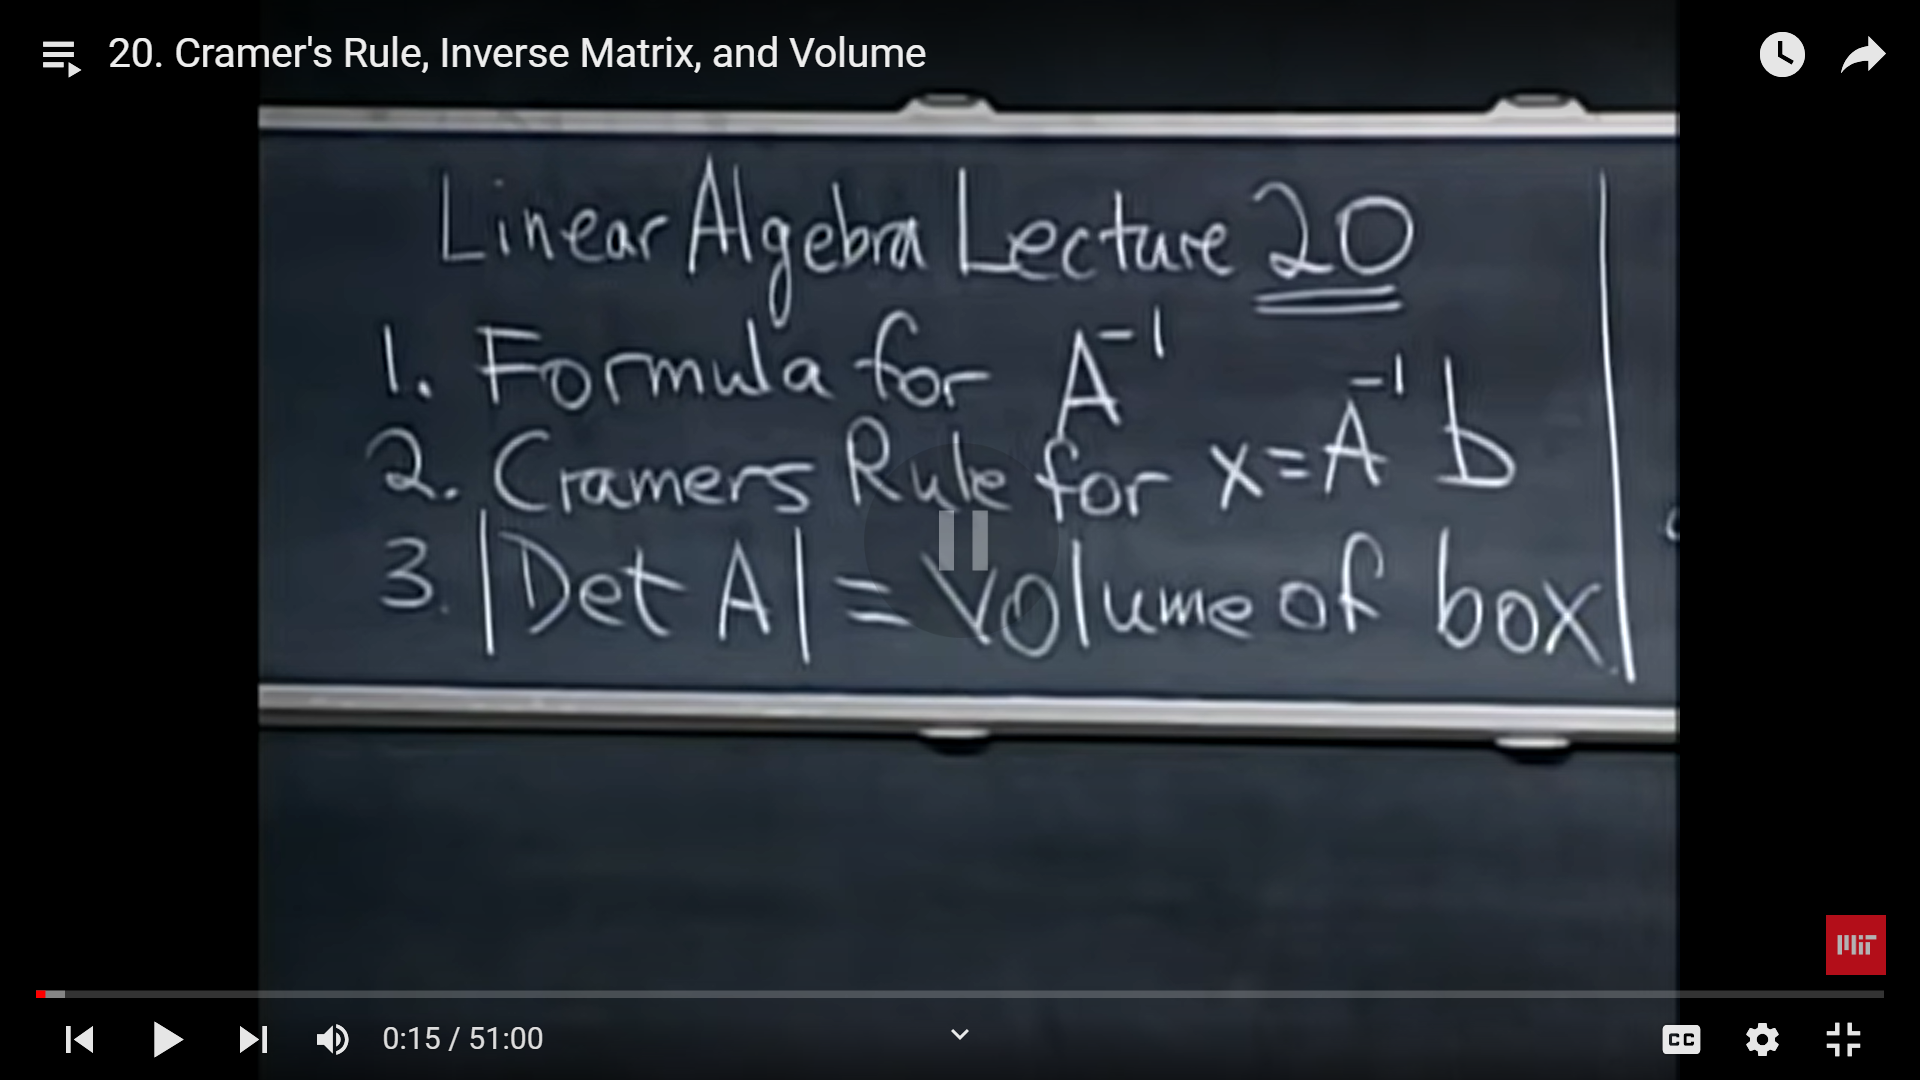 20. Cramer's Rule, Inverse Matrix, and Volume
Linear Algebra Lecture 20
1. Formula for A⁻¹
2. Cramers Rule for x=A⁻¹ b
3. |Det A| = Volume of box
MIT
0:15 / 51:00
CC